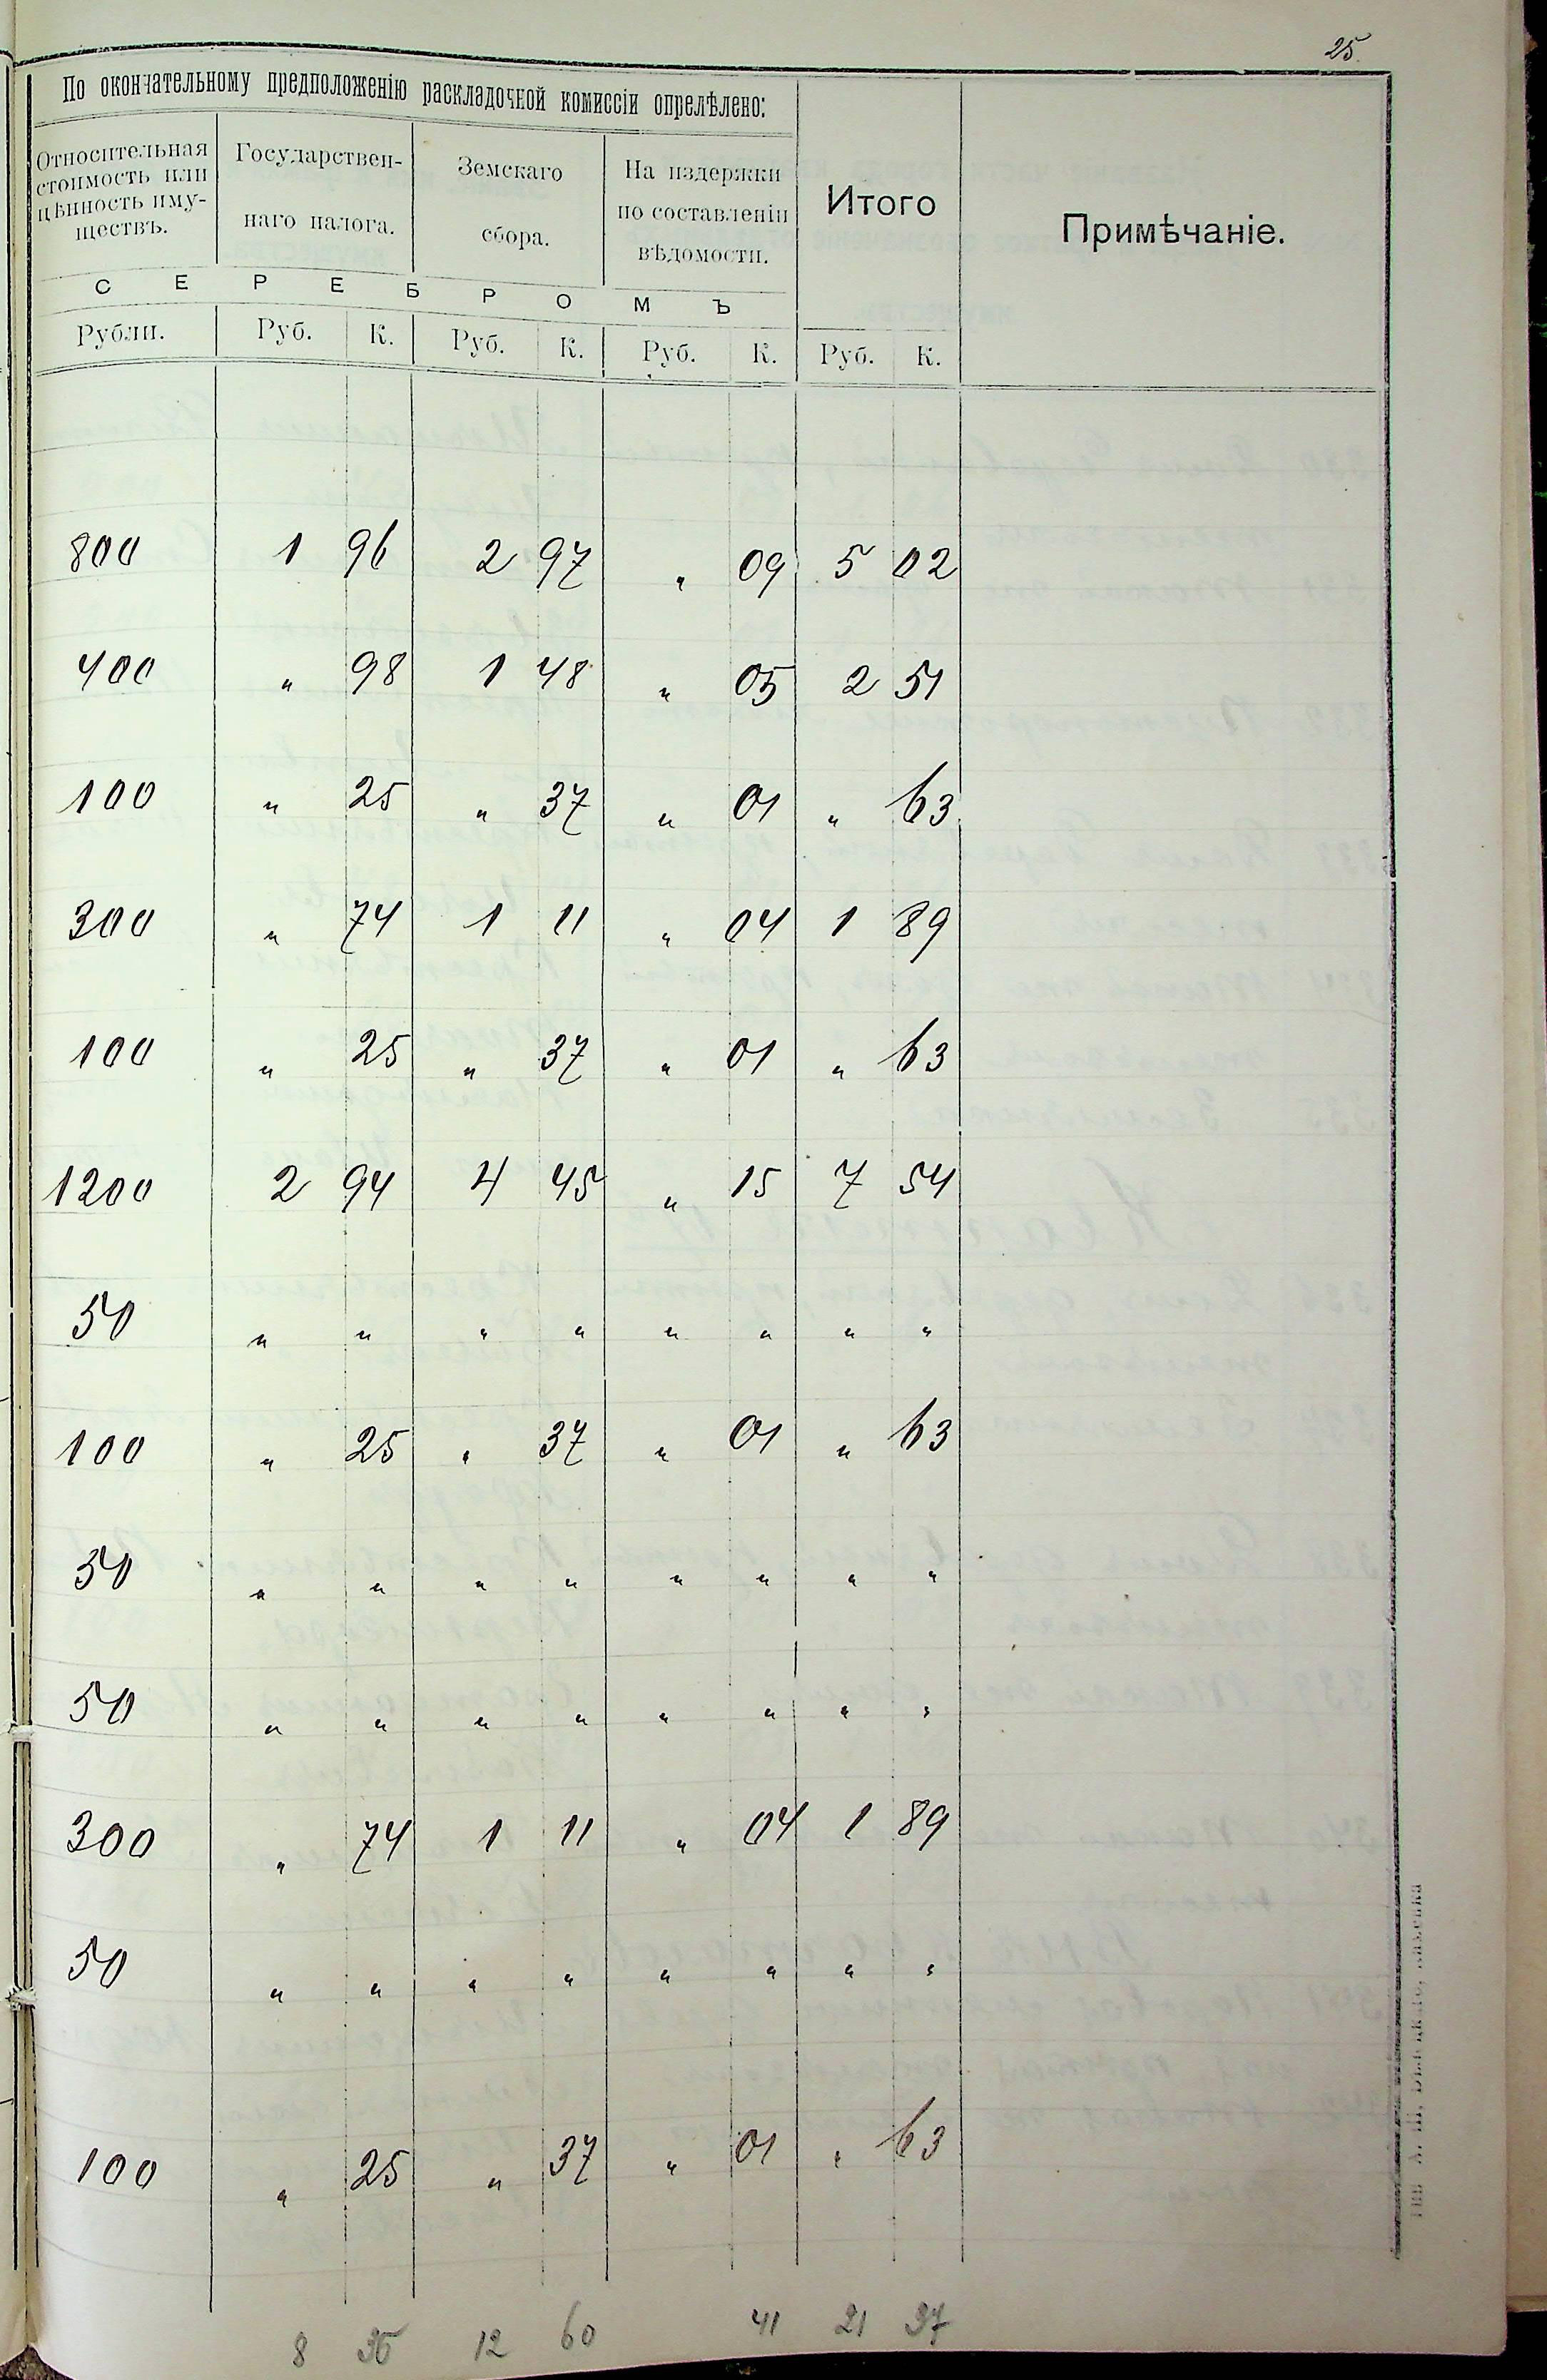 25.
По окончательному предположенію раскладочной комиссіи опрелѣлено:
Относительная стоимость или цѣнность имуществъ.
Государствен-
наго налога.
Земскаго
сбора.
На издержки
по составленіи
вѣдомости.
Итого
Примѣчаніе.
С Е Р Е Б Р О М Ъ
Рубли. Руб. К. Руб. К. Руб. К. Руб. К.
800 1 96 2 97 " 09 5 02
400 " 98 1 48 " 05 2 51
100 " 25 " 37 " 01 " 63
300 " 74 1 11 " 04 1 89
100 " 25 " 37 " 01 " 63
1200 2 94 4 45 " 15 7 54
50 " " " " " " " "
100 " 25 " 37 " 01 " 63
50 " " " " " " " "
50 " " " " " " " "
300 " 74 1 11 " 04 1 89
50 " " " " " " " "
100 " 25 " 37 " 01 " 63
8 36 12 60 41 21 37